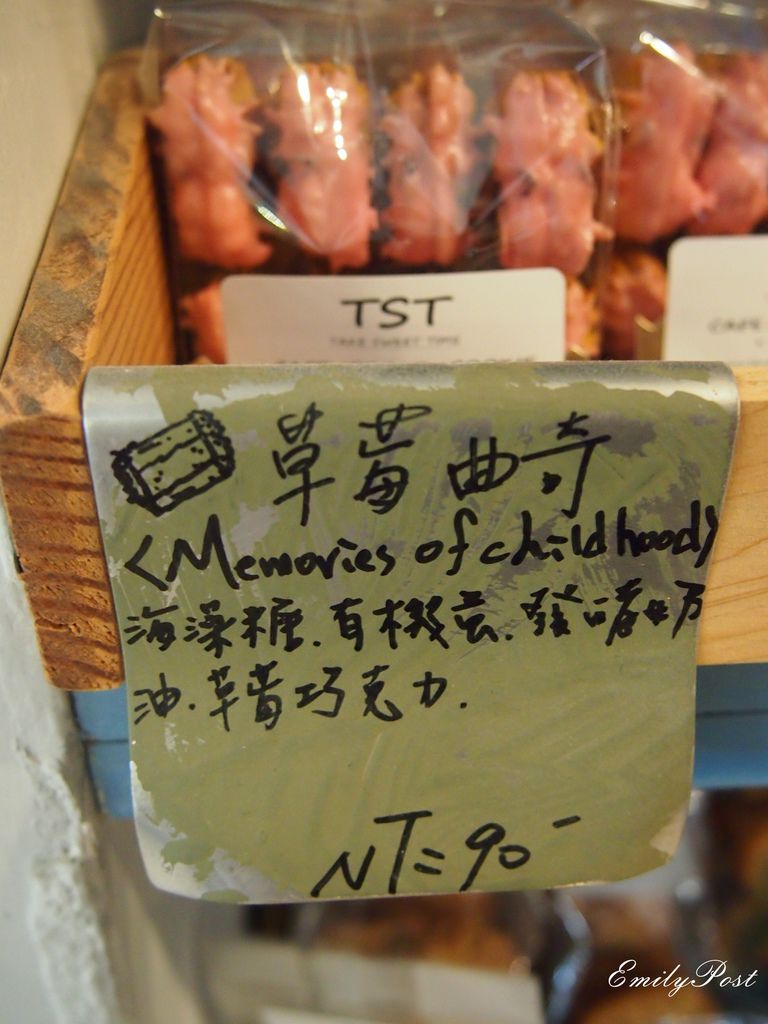 TST
TAKE SWEET TIME
CAFE
草莓曲奇
<Memories of childhood>
海藻糖.有機蛋.發酵奶
油.草莓巧克力.
NT=90-
EmilyPost